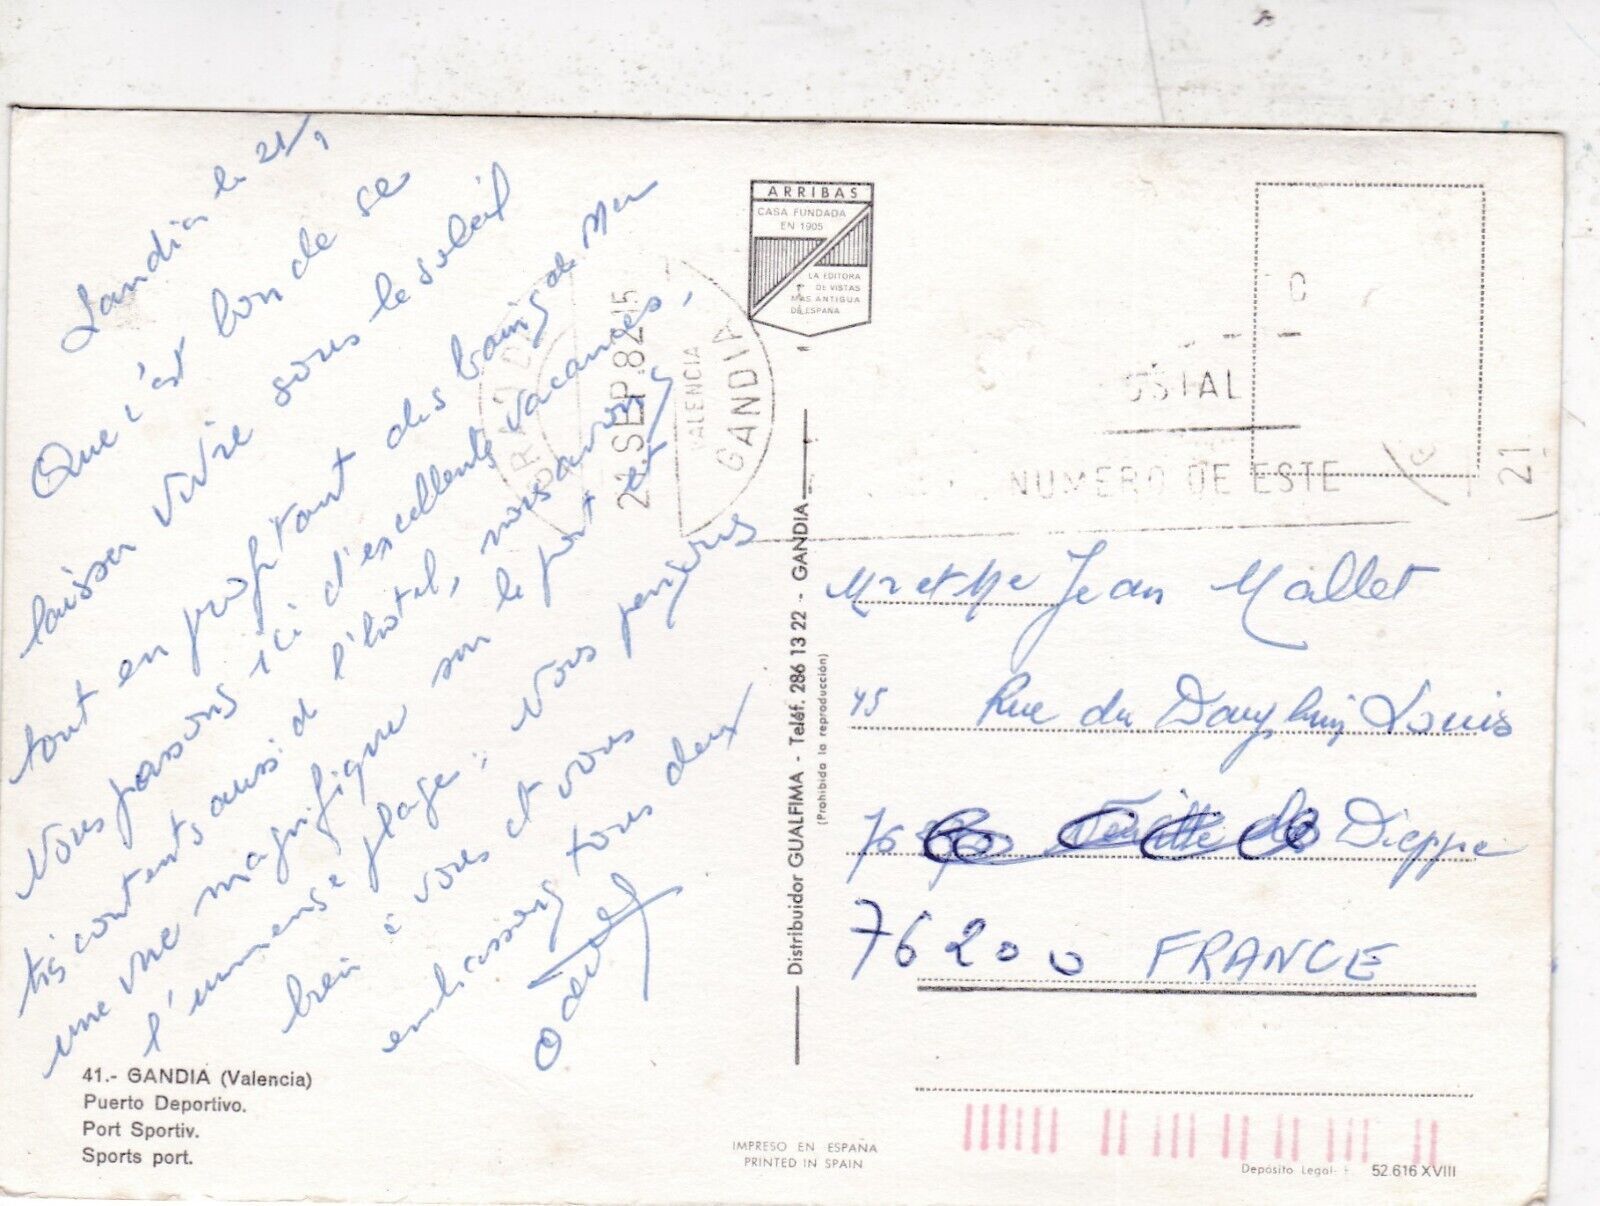 Gandia le 21/9
Que c'est bon de se
laisser vivre sous le soleil
tout en profitant des bains de Mer
Nous passons ici d'excellentes vacances,
très contents aussi de l'hotel, nous avons
une vue magnifique sur le port et
l'immense plage; Nous pensons
bien à vous et vous
embrassons tous deux
41.- GANDIA (Valencia)
Puerto Deportivo.
Port Sportiv.
Sports port.
ARRIBAS
CASA FUNDADA
EN 1905
LA EDITORA
DE VISTAS
MAS ANTIGUA
DE ESPAÑA
21 SEP.82 15
VALENCIA
GANDIA
OSTAL
NUMERO DE ESTE
21
Distribuidor GUALFIMA - Teléf. 286 13 22 - GANDIA
(Prohibida la reproducción)
Mr et Me Jean Mallet
45 Rue du Dauphin Louis
76 Dieppe
76200 FRANCE
IMPRESO EN ESPAÑA
PRINTED IN SPAIN
Depósito Legal 52.616 XVIII